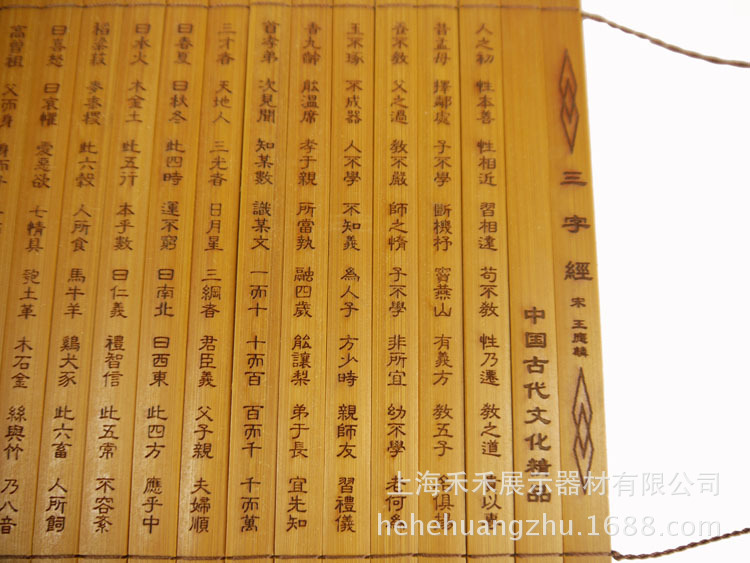 三字經 宋 王應麟
中国古代文化精品
人之初 性本善 性相近 習相遠 苟不教 性乃遷 教之道 以專
昔孟母 擇鄰處 子不學 斷機杼 竇燕山 有義方 教五子 名俱揚
養不教 父之過 教不嚴 師之惰 子不學 非所宜 幼不學 老何為
玉不琢 不成器 人不學 不知義 為人子 方少時 親師友 習禮儀
香九齡 能溫席 孝于親 所當執 融四歲 能讓梨 弟于長 宜先知
首孝弟 次見聞 知某數 識某文 一而十 十而百 百而千 千而萬
三才者 天地人 三光者 日月星 三綱者 君臣義 父子親 夫婦順
曰春夏 曰秋冬 此四時 運不窮 曰南北 曰西東 此四方 應乎中
曰水火 木金土 此五行 本乎數 曰仁義 禮智信 此五常 不容紊
稻粱菽 麥黍稷 此六穀 人所食 馬牛羊 雞犬豕 此六畜 人所飼
曰喜怒 曰哀懼 愛惡欲 七情具 匏土革 木石金 絲與竹 乃八音
高曾祖 父而身
上海禾禾展示器材有限公司
hehehuangzhu.1688.com